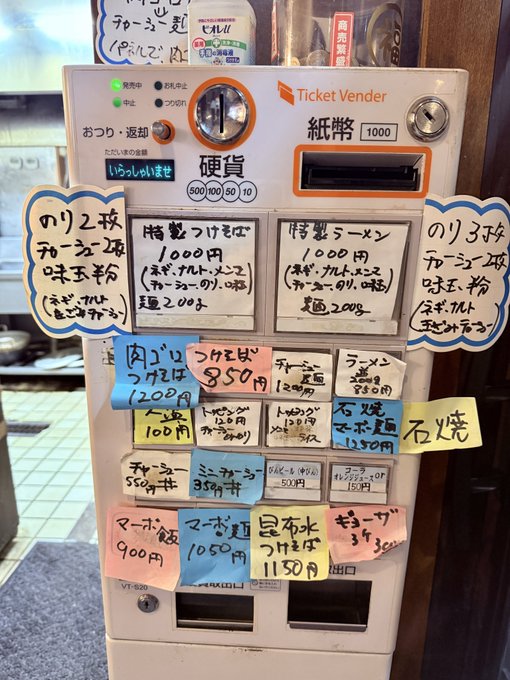 チャーシュー麺
ビオレu
商売繁盛
発売中
お札中止
中止
つり切れ
Ticket Vender
おつり・返却
紙幣
1000
ただいまの金額
いらっしゃいませ
硬貨
500 100 50 10
のり2枚
チャーシュー2枚
味玉粉
(ネギ、ナルト
特製つけそば
1000円
(ネギ、ナルト、メンマ
チャーシュー、のり、味玉)
麺200g
特製ラーメン
1000円
(ネギ、ナルト、メンマ
チャーシュー、のり、味玉)
麺200g
のり3枚
チャーシュー2枚
味玉粉
(ネギ、ナルト
肉ゴロ
つけそば
1200円
つけそば
850円
チャーシュー
麺
1200円
ラーメン
並200g
850円
大盛
100円
トッピング
120円
チャーシュー
のり
トッピング
120円
ライス
石焼
マーボ麺
1250円
石焼
チャーシュー
550円丼
ミニチャーシュー
350円丼
びんビール(中びん)
500円
コーラor
オレンジジュース
150円
マーボ飯
900円
マーボ麺
1050円
昆布水
つけそば
1150円
ギョーザ
3ケ
300
VT-S20
取出口
取出口